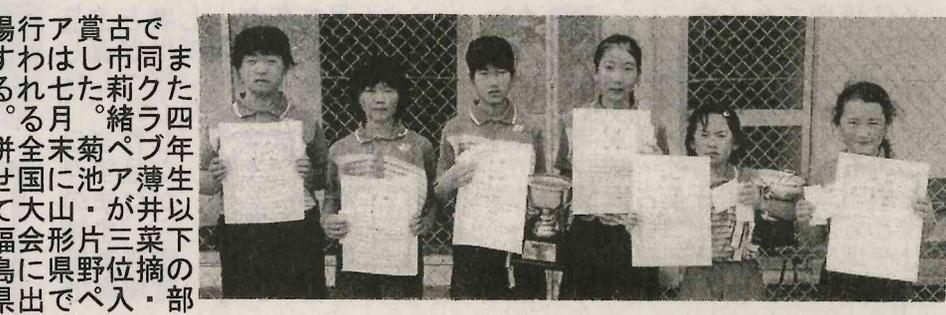 また四年生以下の部
で同クラブ薄井菜摘・
古市莉緒ペアが三位入
賞した。菊池・片野ペ
アは七月末に山形県で
行われる全国大会に出
場する。併せて福島県